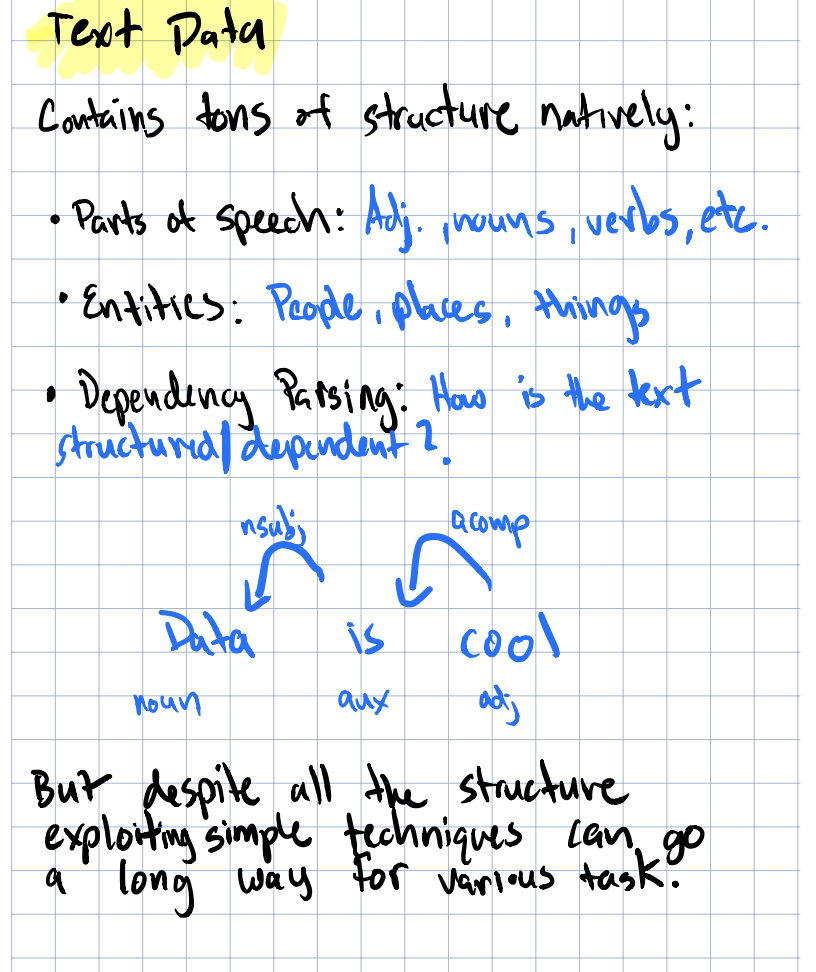 Text Data
Contains tons of structure natively:
• Parts of speech: Adj., nouns, verbs, etc.
• Entities: People, places, things
• Dependency Parsing: How is the text
structured/dependent?
nsubj acomp
Data is cool
noun aux adj
But despite all the structure
exploiting simple techniques can go
a long way for various task.